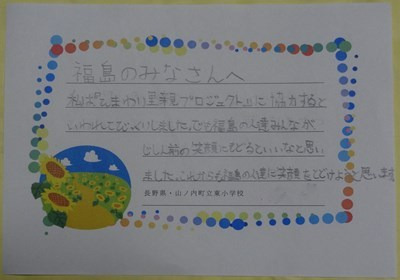 福島のみなさんへ
私は『ひまわり里親プロジェクト』に協力するって
いわれてびっくりしました。でも福島の人達みんなが
じしん前の笑顔にもどるといいなと思い
ました。これからも福島の人達に笑顔をとどけようと思います
長野県・山ノ内町立東小学校